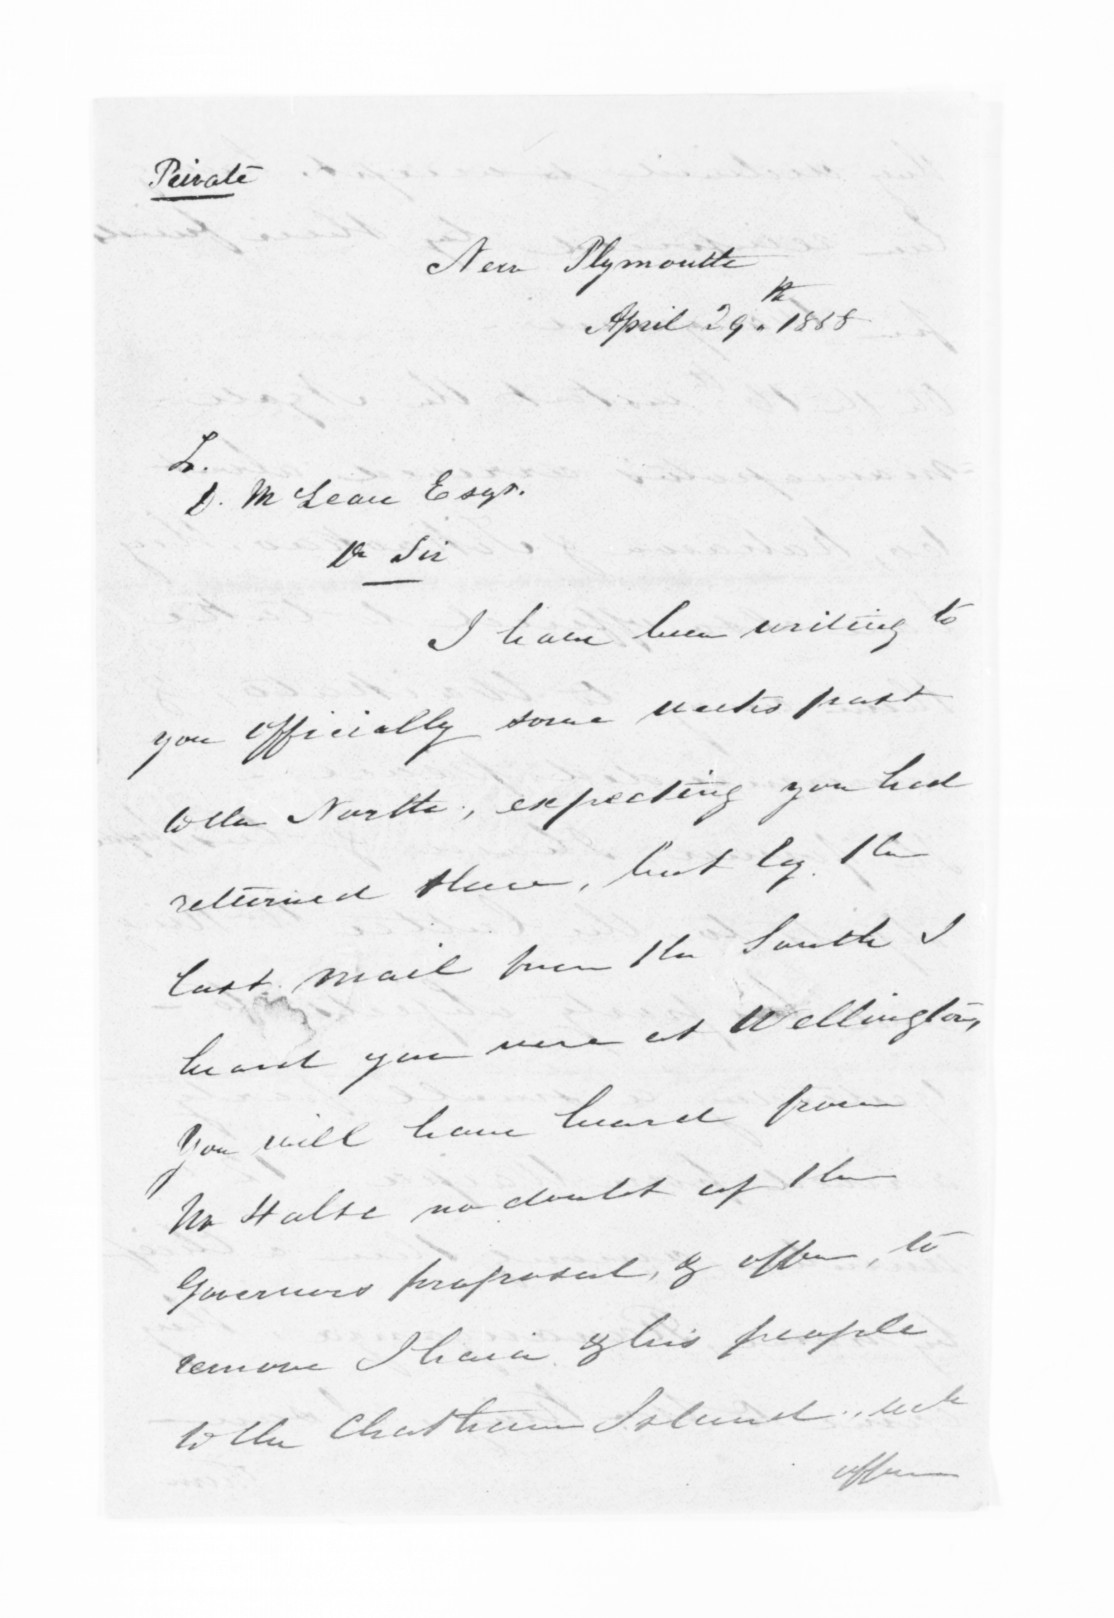 Private
New Plymouth
April 29.th 1858
To.
D. McLean Esqr.
Dr Sir
I have been writing to
you officially some weeks past
to the North, expecting you had
returned there, but by the
last mail from the South I
heard you were at Wellington,
You will have heard from
Mr Halse no doubt of the
Governors proposal, & offer, to
remove Ihaia & his people
to the Chatham Island.,
offer